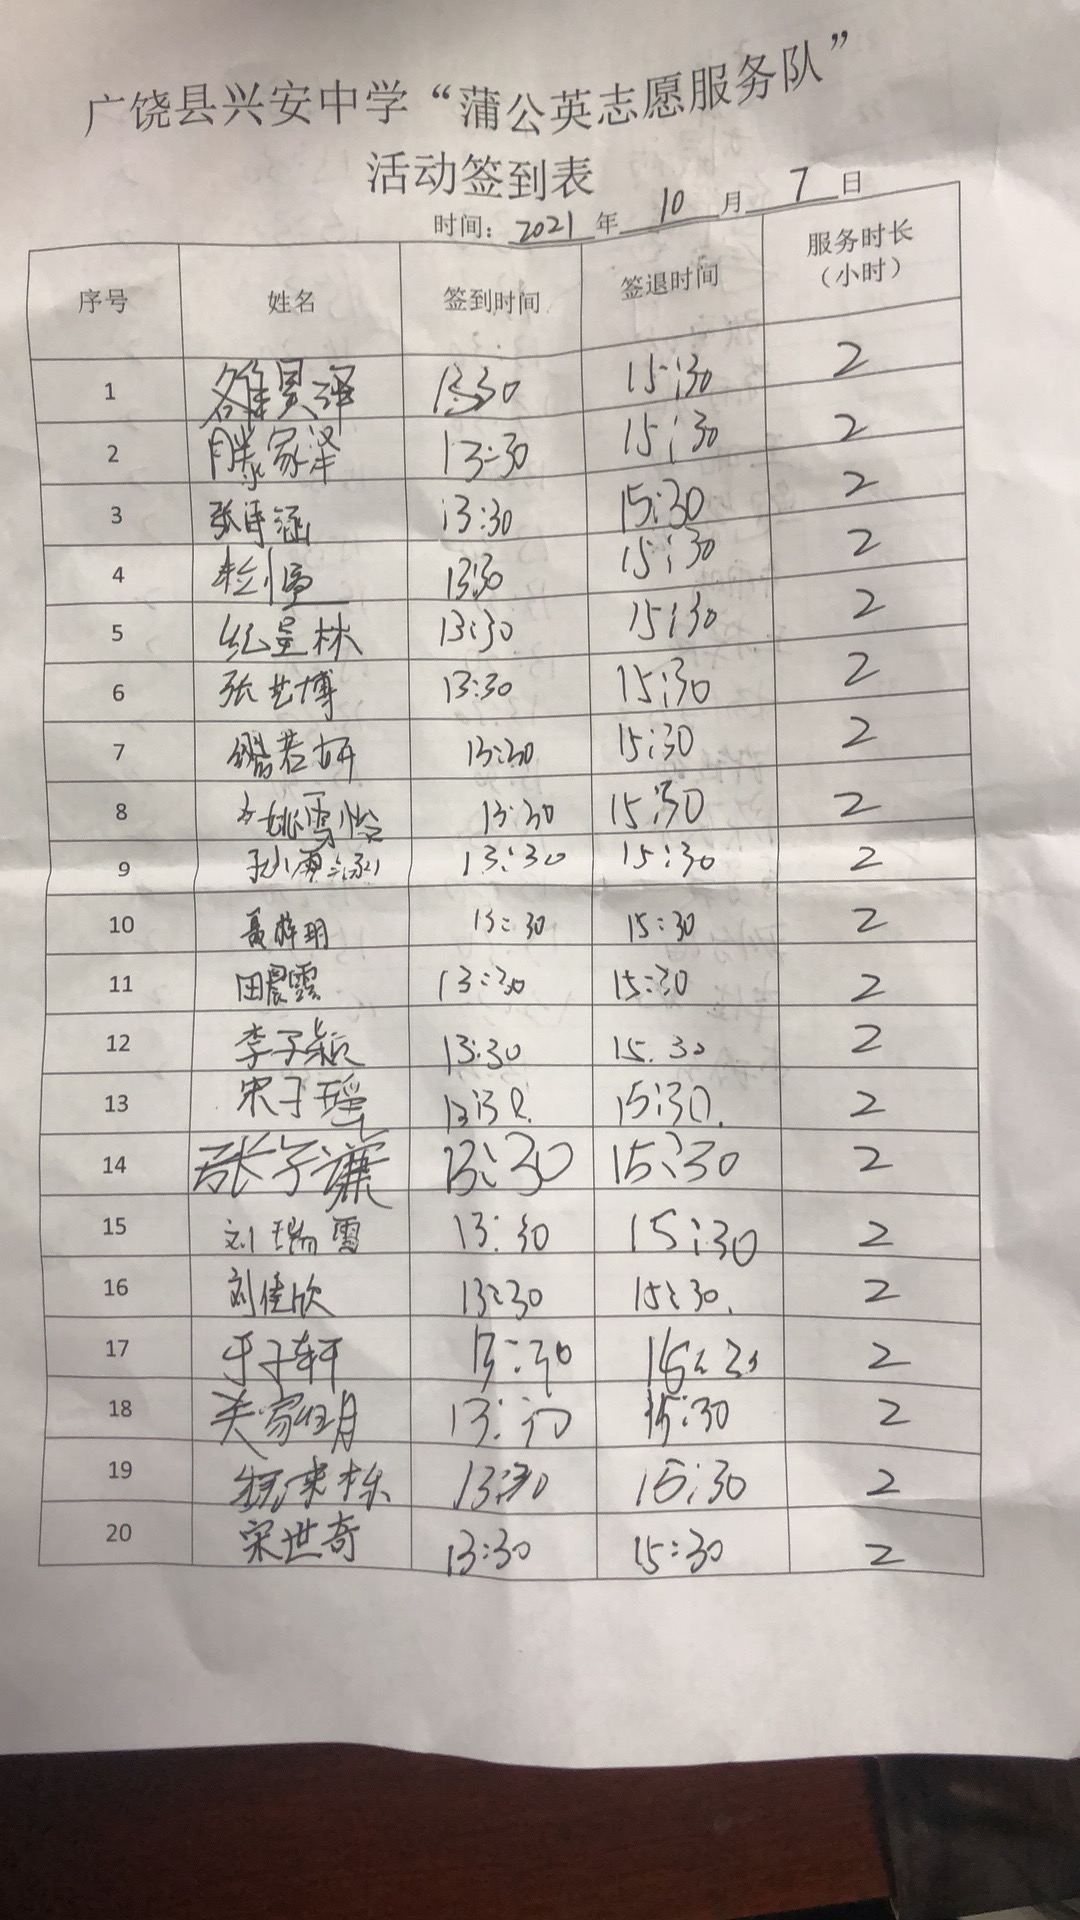 广饶县兴安中学“蒲公英志愿服务队”
活动签到表
时间：2021年 10 月 7 日
序号 姓名 签到时间 签退时间 服务时长（小时）
1 泽 13:30 15:30 2
2 滕家泽 13:30 15:30 2
3 张 涵 13:30 15:30 2
4 13:30 15:30 2
5 纪星林 13:30 15:30 2
6 张艺博 13:30 15:30 2
7 若妍 13:30 15:30 2
8 姚雪 13:30 15:30 2
9 13:30 15:30 2
10 聂梓玥 13:30 15:30 2
11 田晨雲 13:30 15:30 2
12 李子颖 13:30 15.30 2
13 宋子瑶 13:30. 15:30. 2
14 张子谦 13:30 15:30 2
15 刘瑞雪 13:30 15:30 2
16 刘佳欣 13:30 15:30. 2
17 于子轩 13:30 15:30 2
18 家 13:30 15:30 2
19 栋 13:30 15:30 2
20 宋世奇 13:30 15:30 2